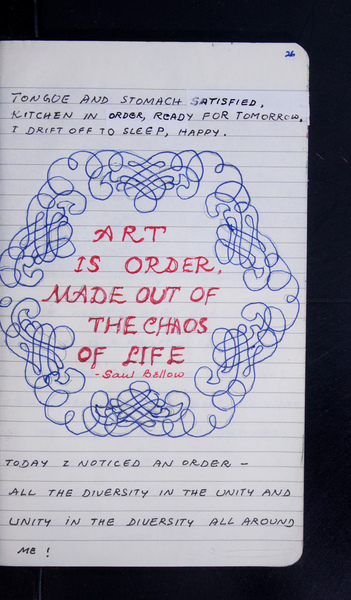 26
TONGUE AND STOMACH SATISFIED,
KITCHEN IN ORDER, READY FOR TOMORROW,
I DRIFT OFF TO SLEEP, HAPPY.
ART
IS ORDER,
MADE OUT OF
THE CHAOS
OF LIFE
- Saul Bellow
TODAY I NOTICED AN ORDER -
ALL THE DIVERSITY IN THE UNITY AND
UNITY IN THE DIVERSITY ALL AROUND
ME !